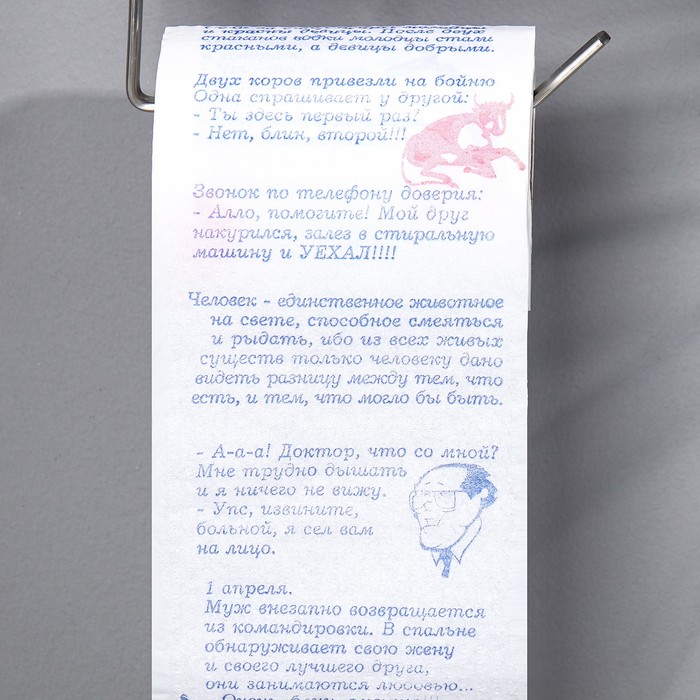 и красны девицы. После двух
стаканов водки молодцы стали
красными, а девицы добрыми.
Двух коров привезли на бойню
Одна спрашивает у другой:
- Ты здесь первый раз?
- Нет, блин, второй!!!
Звонок по телефону доверия:
- Алло, помогите! Мой друг
накурился, залез в стиральную
машину и УЕХАЛ!!!!
Человек - единственное животное
на свете, способное смеяться
и рыдать, ибо из всех живых
существ только человеку дано
видеть разницу между тем, что
есть, и тем, что могло бы быть.
- А-а-а! Доктор, что со мной?
Мне трудно дышать
и я ничего не вижу.
- Упс, извините,
больной, я сел вам
на лицо.
1 апреля.
Муж внезапно возвращается
из командировки. В спальне
обнаруживает свою жену
и своего лучшего друга,
они занимаются любовью...